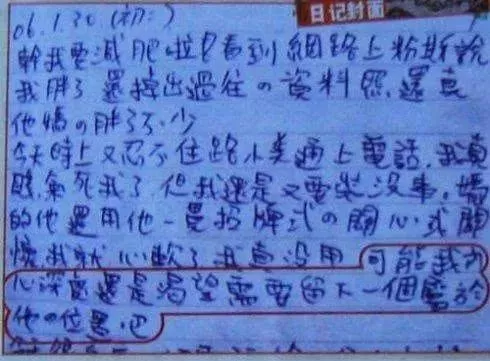 日记封面
06.1.30.(初二)
幹我要減肥啦!看到網路上粉斯說
我胖了 還掉出過往の資料照.還真
他媽の胖了不少
今天晚上又忍不住路人类通上電話.我真
氣死我了.但我還是又要裝沒事.媽
的他還用他一貫招牌式の關心式關
懷我就心軟了我真沒用 可能我內
心深處還是渴望需要留下一個屬於
他の位置吧